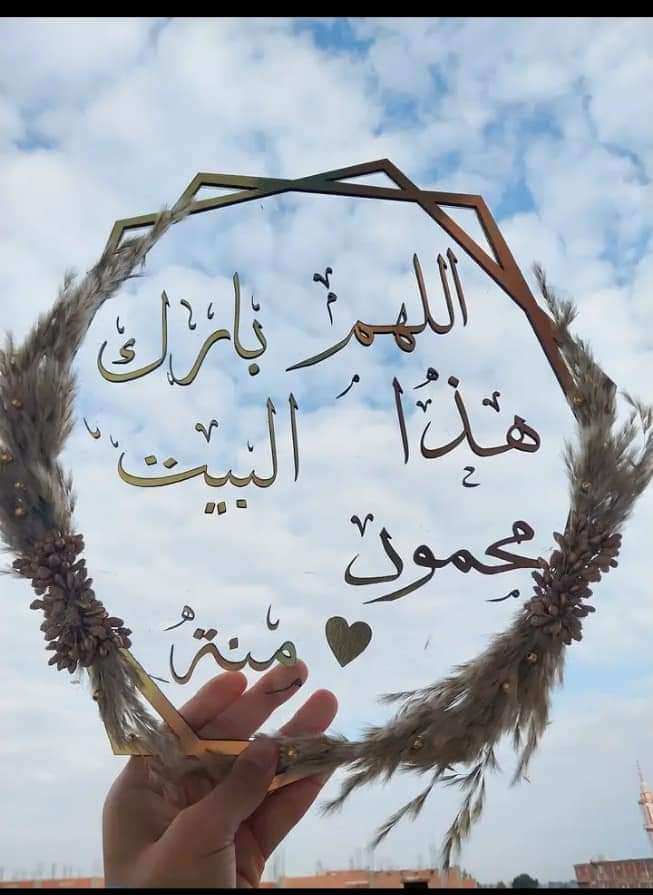 اللهم بارك
هذا البيت
محمود
♥ منة